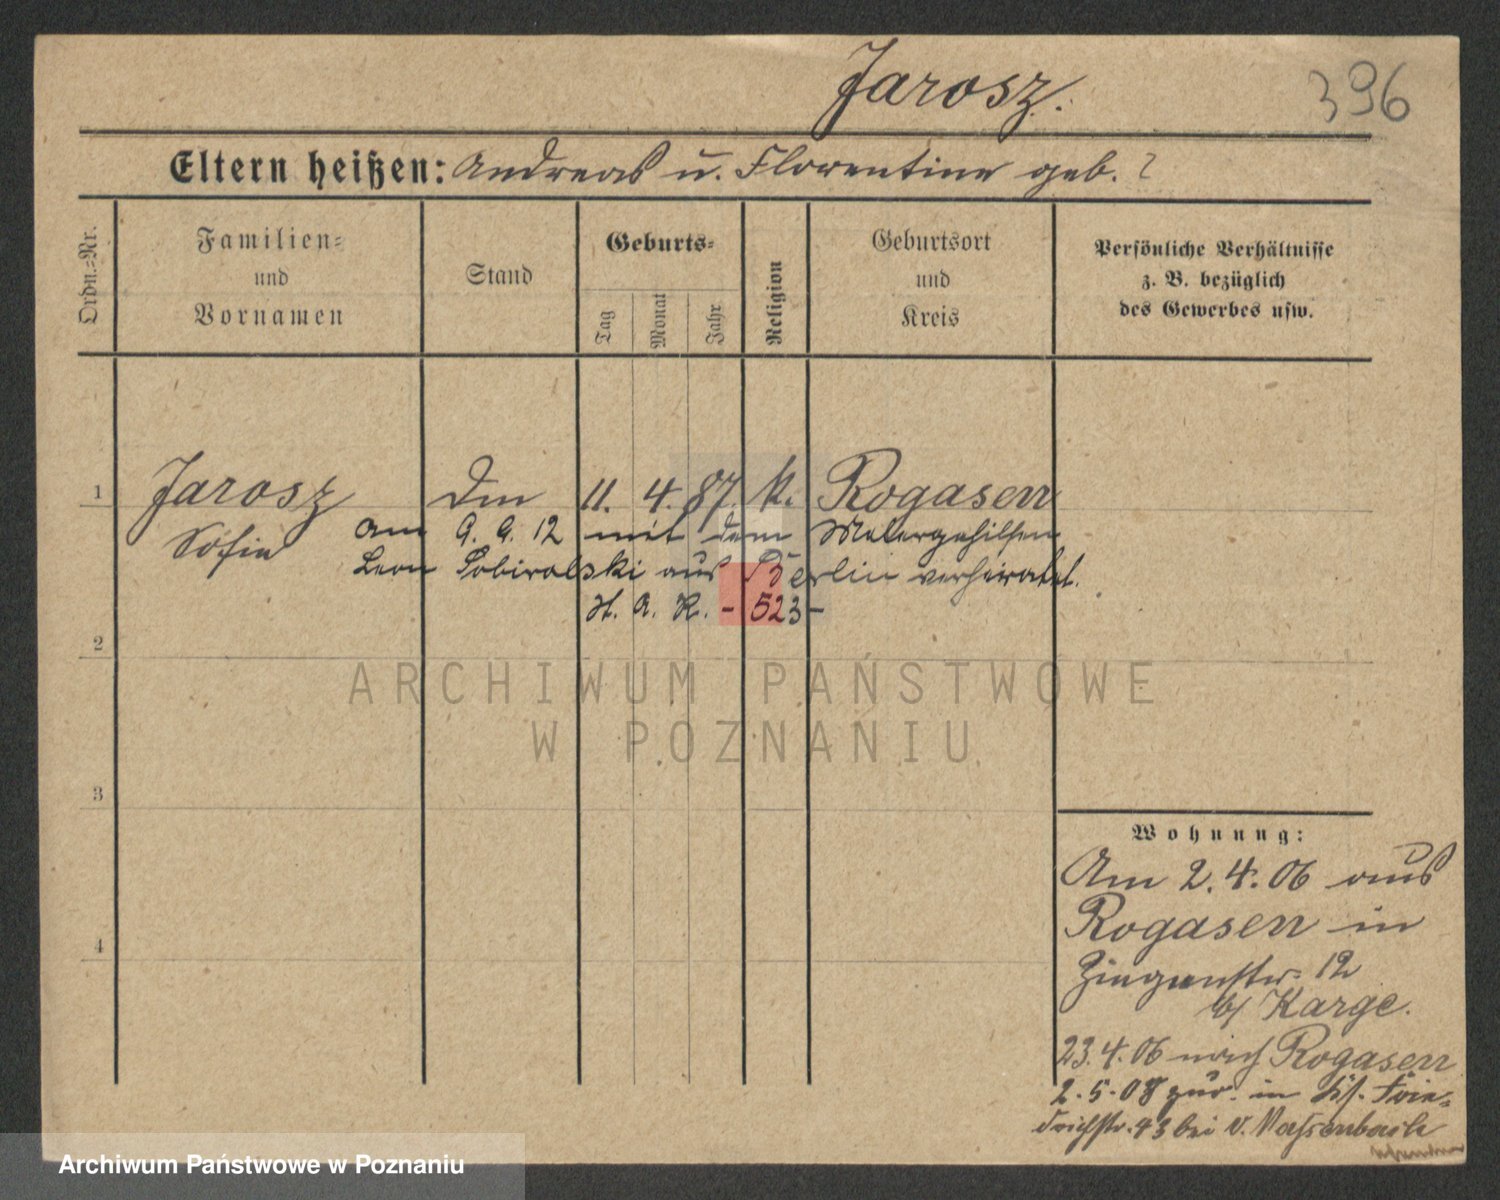 Jarosz.
396
Eltern heißen: Andreas u. Florentine geb. ?
Ordn.=Nr.
Familien=
und
Vornamen
Stand
Geburts=
Tag
Monat
Jahr
Religion
Geburtsort
und
Kreis
Persönliche Verhältnisse
z. B. bezüglich
des Gewerbes usw.
1 Jarosz Dm 11. 4. 87. k. Rogasen
Sofie am 9. 9. 12 mit dem Malergehilfen
Leon Sobiralski aus Berlin verheiratet.
H. A. R. - 523 -
2
3
4
Wohnung:
Am 2. 4. 06 aus
Rogasen in
Ziegenstr. 12
b/ Karge.
23. 4. 06 nach Rogasen
2. 5. 08 zur. in Frie=
drichstr. 43 bei v. Massenbach
ARCHIWUM PAŃSTWOWE
W POZNANIU
Archiwum Państwowe w Poznaniu